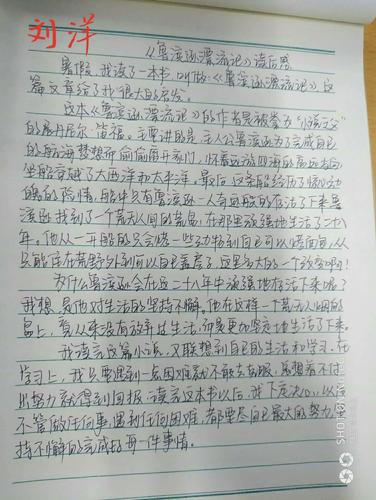 刘洋
《鲁滨逊漂流记》读后感
暑假,我读了一本书,叫做《鲁滨逊漂流记》,这
篇文章给了我很大的启发。
这本《鲁滨逊漂流记》的作者是被誉为“小说之父”
的丹尼尔·笛福。主要讲的是:主人公鲁滨逊为了完成自己
的航海梦想而偷偷离开家门,怀着远游四海的高远志向,
坐船穿越了大西洋和太平洋。最后,这条船经历了惊心动
魄的险情,船中只有鲁滨逊一人奇迹般的存活了下来。鲁
滨逊找到了个荒无人烟的荒岛,在那里顽强地生活了二十八
年。他从一开始的只会 一些 到自己可以 面 ,从
只能住在荒野外到可以自己盖房子,这是多大的一个改变啊!
为什么鲁滨逊会在这二十八年中顽强地存活下来呢?
我想,是他对生活的坚持不懈。他在这样一个荒无人烟的
岛上,看从来没有放弃过生活,而是更加坚定地生活了下来。
我读完这篇小说,又联想到自己的生活和学习,在
学习上,我只要遇到一点困难就不敢去克服,总想着不付
出努力就得到回报。读完这本书以后,我下定决心,以后
不管做任何事,遇到任何困难,都要尽自己最大的努力,坚
持不懈的完成好每一件事情。
SHOT ON